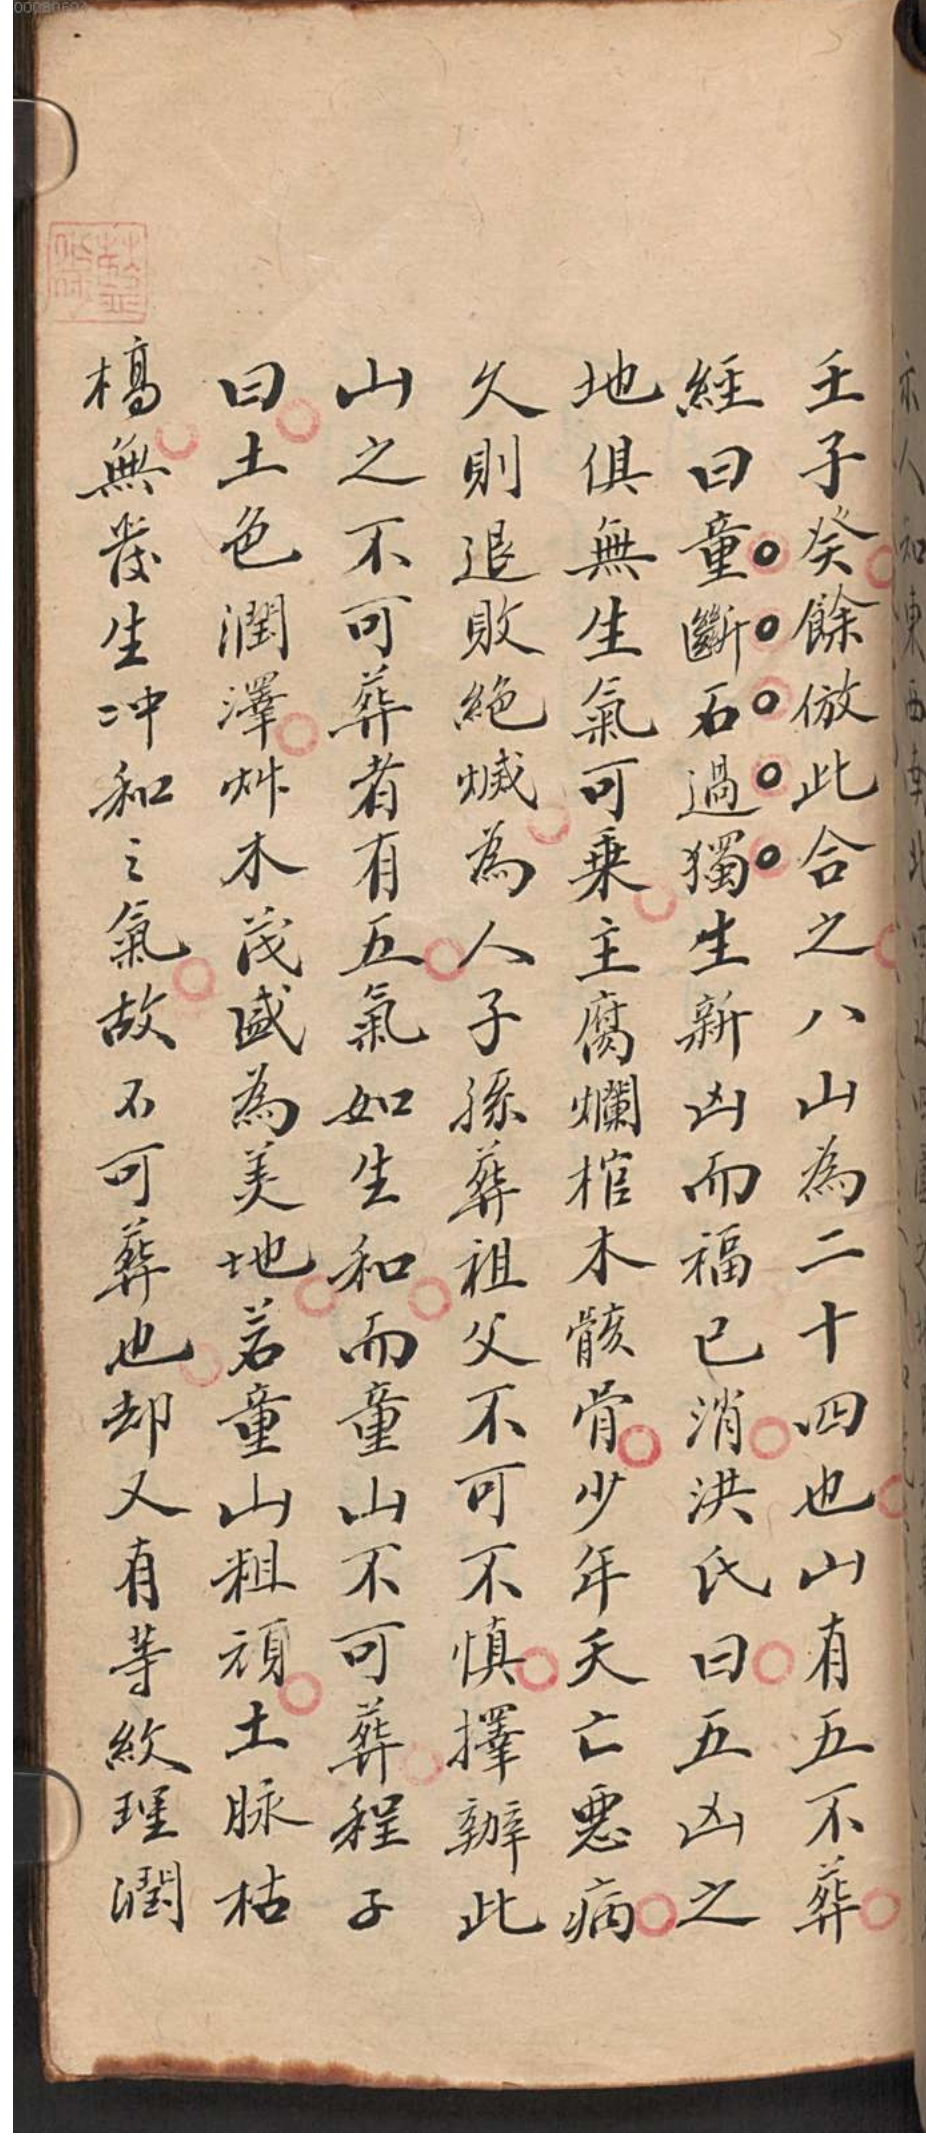 壬子癸餘倣此合之八山為二十四也山有五不葬
經曰童斷石過獨生新凶而福已消洪氏曰五凶之
地俱無生氣可乗主腐爛棺木骸骨少年夭亡惡病
久則退敗絶烕為人子孫葬祖父不可不慎擇辦此
山之不可葬者有五氣如生和而童山不可葬程子
曰土色潤澤艸木茂盛為美地若童山粗頑土脉枯
槁無發生冲和之氣故不可葬也却又有等紋理潤
00080604